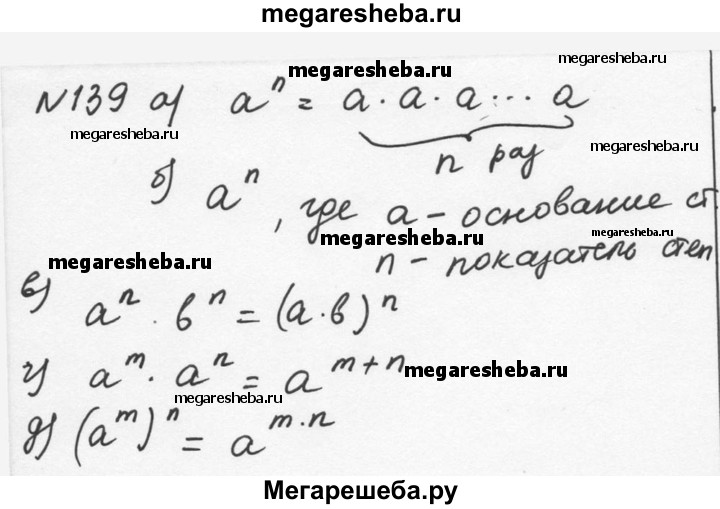 megaresheba.ru
megaresheba.ru
megaresheba.ru
№139 а) aⁿ = a · a · a ... a
megaresheba.ru
n раз
megaresheba.ru
б) aⁿ, где a - основание ст
megaresheba.ru
n - показатель степ
megaresheba.ru
в) aⁿ · bⁿ = (a · b)ⁿ
г) aᵐ · aⁿ = aᵐ⁺ⁿ
megaresheba.ru
megaresheba.ru
д) (aᵐ)ⁿ = aᵐ·ⁿ
Мегарешеба.ру